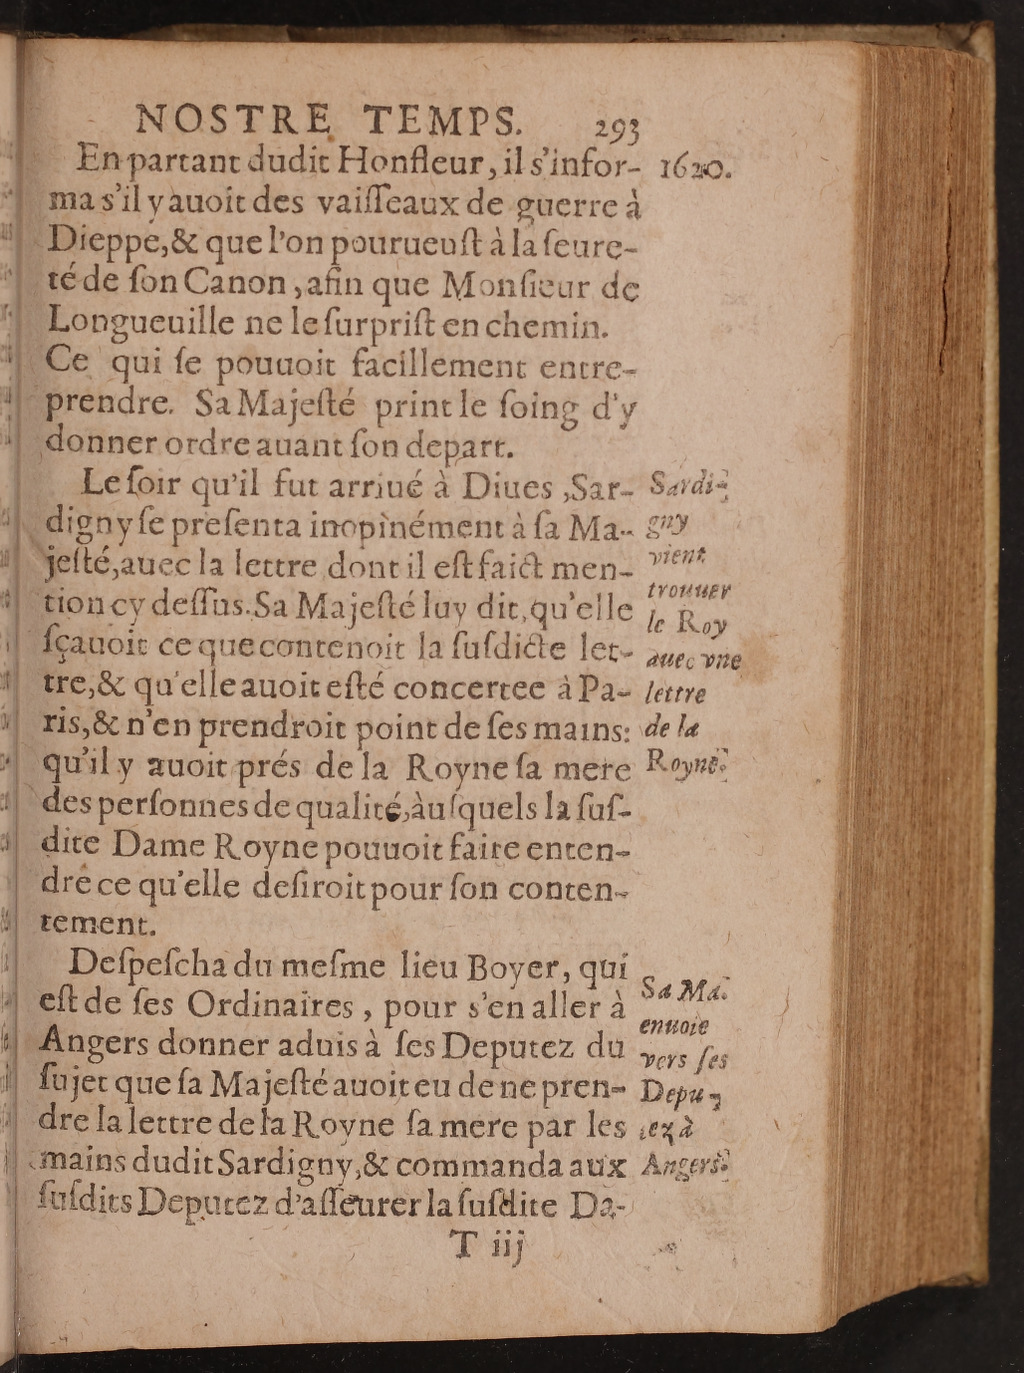 NOSTRE TEMPS. 293
En partant dudit Honfleur, il s'infor-
1620.
ma s'il y auoit des vaiſſeaux de guerre à
Dieppe, & que l'on pourueuſt à la ſeure-
té de ſon Canon, afin que Monſieur de
Longueuille ne le ſurpriſt en chemin.
Ce qui ſe pouuoit facillement entre-
prendre. Sa Majeſté print le ſoing d'y
donner ordre auant ſon depart.
Le ſoir qu'il fut arriué à Diues, Sar-
digny ſe preſenta inopinément à ſa Ma-
jeſté, auec la lettre dont il eſt faict men-
tion cy deſſus. Sa Majeſté luy dit, qu'elle
ſçauoit ce que contenoit la ſuſdicte let-
tre, & qu'elle auoit eſté concertee à Pa-
ris, & n'en prendroit point de ſes mains:
qu'il y auoit prés de la Royne ſa mere
des perſonnes de qualité, àuſquels la ſuſ-
dite Dame Royne pouuoit faire enten-
dre ce qu'elle deſiroit pour ſon conten-
tement.
Sardi-
gny
vient
trouuer
le Roy
auec vne
lettre
de la
Royne.
Deſpeſcha du meſme lieu Boyer, qui
eſt de ſes Ordinaires, pour s'en aller à
Angers donner aduis à ſes Deputez du
ſujet que ſa Majeſté auoit eu de ne pren-
dre la lettre de la Royne ſa mere par les
mains dudit Sardigny, & commanda aux
ſuſdits Deputez d'aſſeurer la ſuſdite Da-
Sa Ma.
enuoie
vers ſes
Depu-
tez à
Angers.
T iij